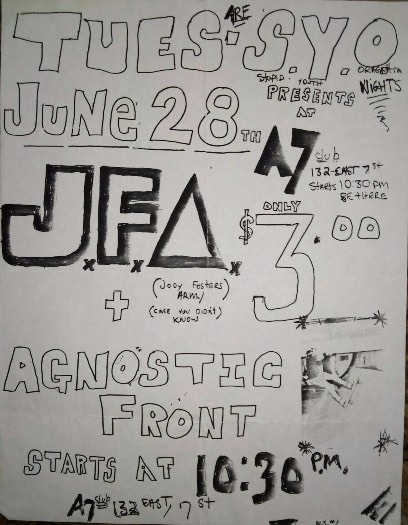 TUES. ARE S.Y.O.
STUPID YOUTH
NIGHTS
PRESENTS
AT
JUNE 28TH
A7 club
132-EAST 7 St
Starts 10:30 PM
BE THERE
J.F.A.
ONLY
$3.00
+
(JODY FOSTERS
ARMY)
(CASE YOU DIDN'T
KNOW)
AGNOSTIC
FRONT
STARTS AT 10:30 P.M.
A7 club 132 EAST, 7 St